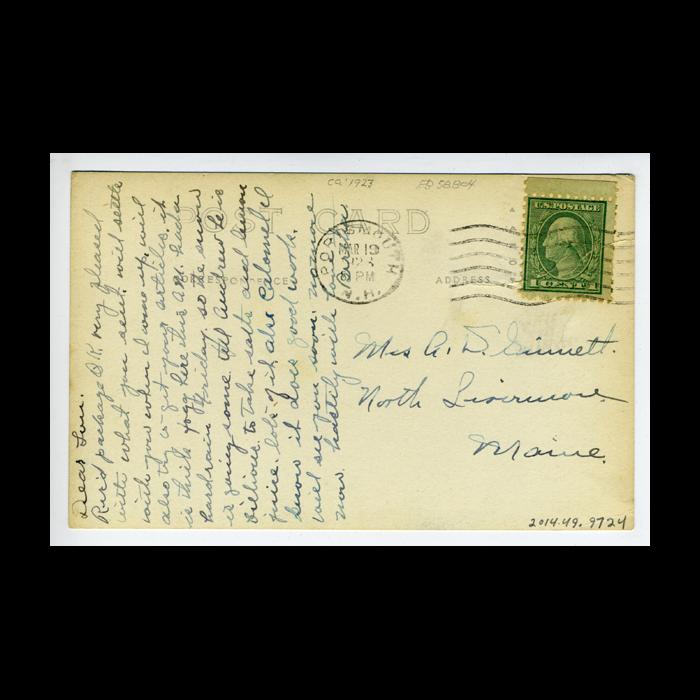 Ca. 1923
POST CARD
CORRESPONDENCE
ADDRESS
PORTSMOUTH
MAR 19
PM
N.H.
U.S. POSTAGE
1 CENT 1
Dear
Rec'd package O.K. very pleased
with what you sent. will settle
with you when I come up, will
also try to get your articles, it
is thick fogg here this A.M. had a
hard rain Monday, so the snow
is going some. tell Andrew if is
billious to take salts and lemon
juice. lots of it also Calomel I
know it does good work.
will see you soon. no more
now. hastily with love
Mrs A. D.
North Livermore
Maine.
2014.49.9724